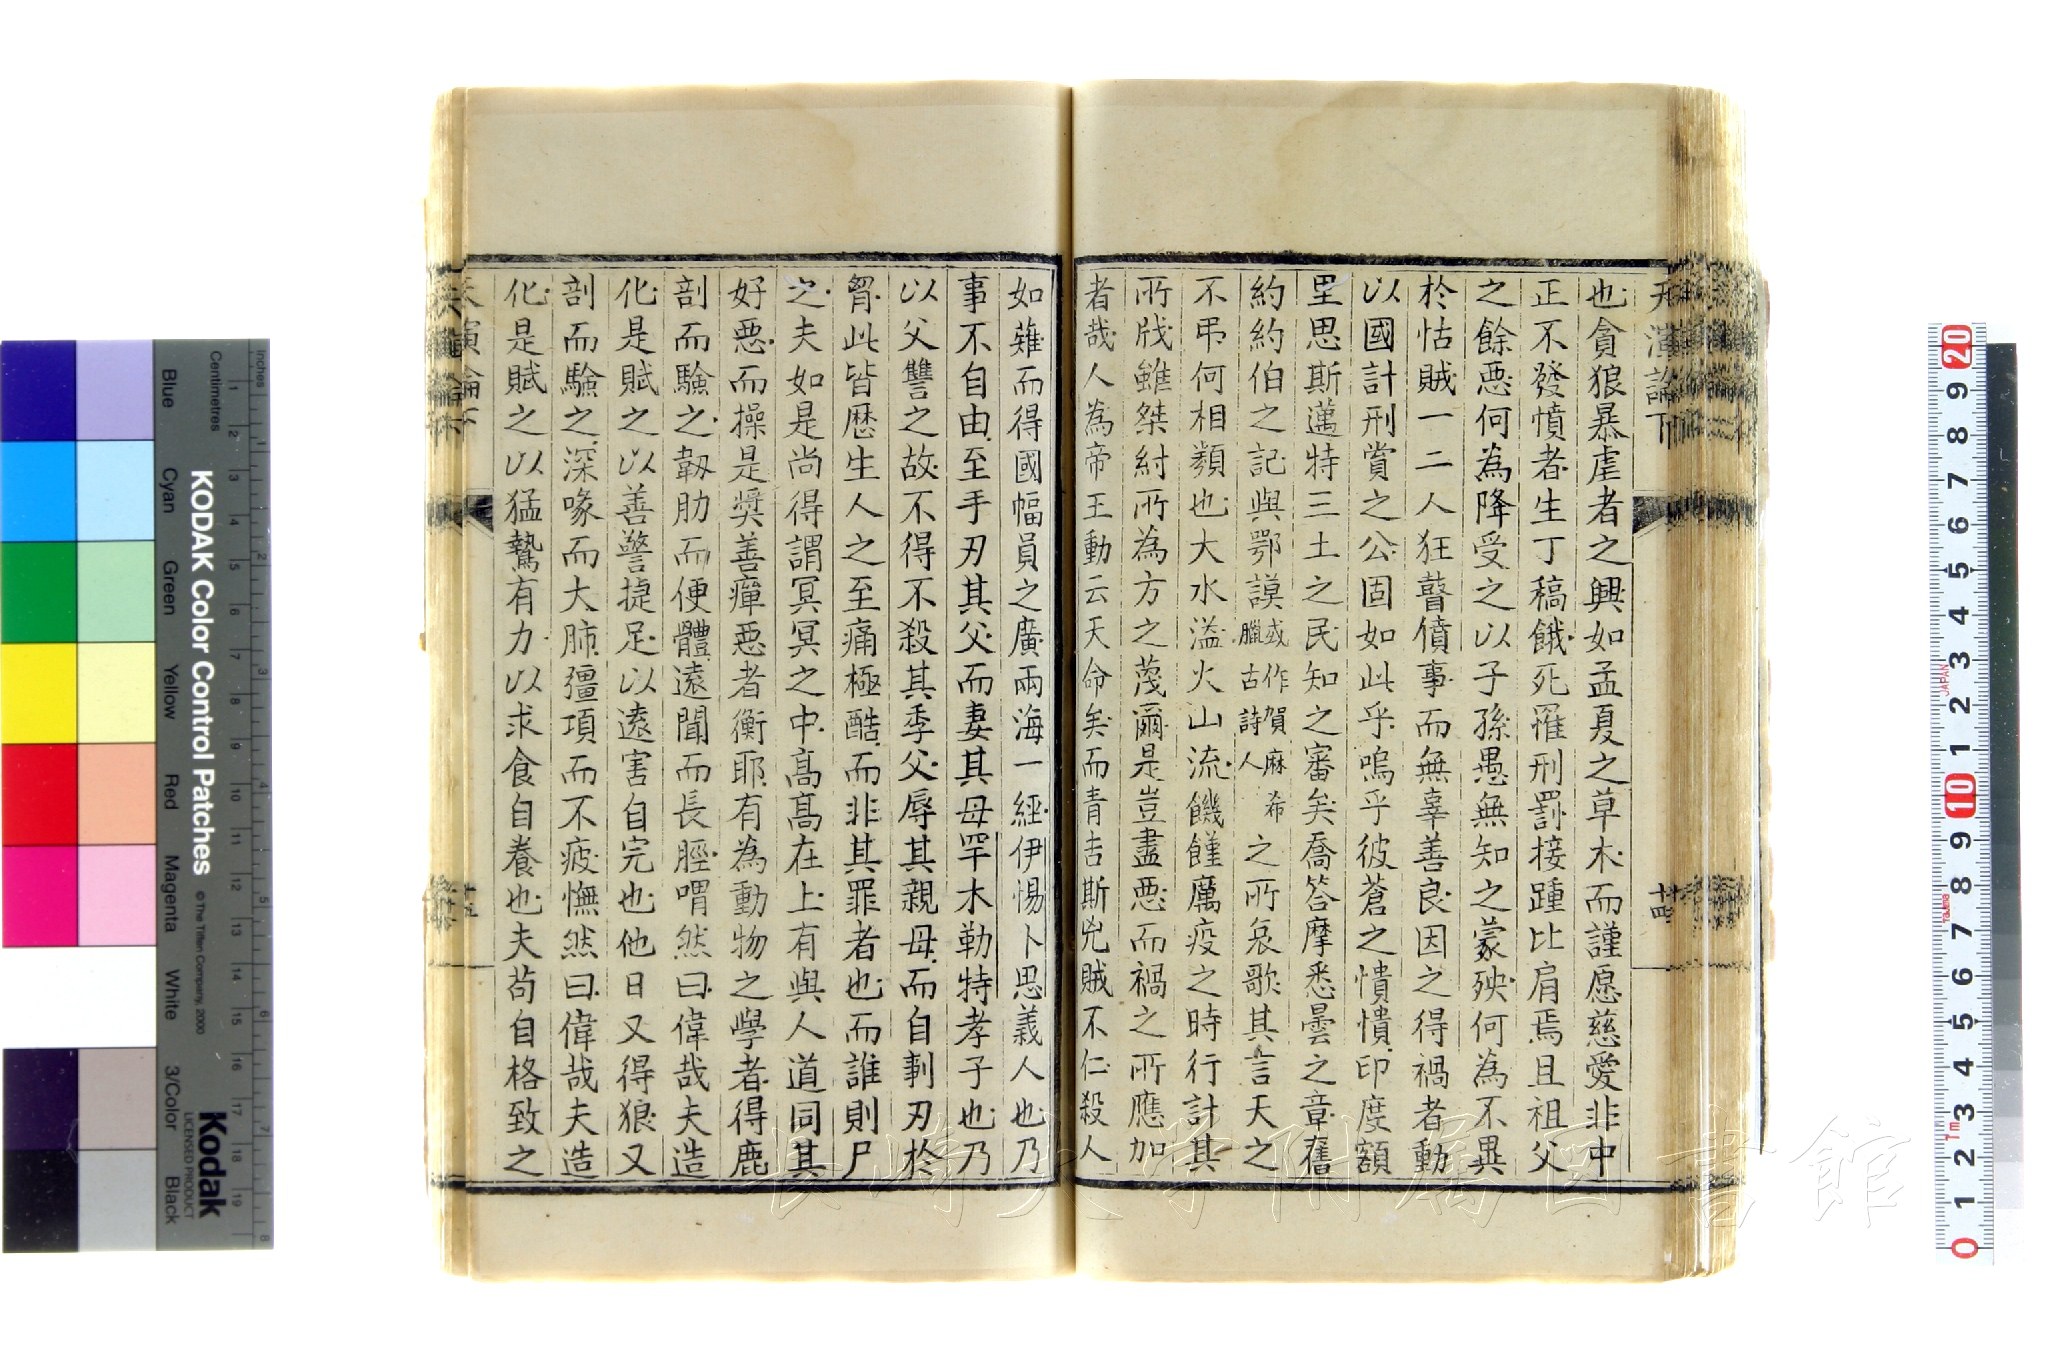 天演論下
十四
也貪狼暴虐者之興如孟夏之草木而謹愿慈愛非中
正不發憤者生丁稿餓死罹刑罰接踵比肩焉且祖父
之餘惡何為降受之以子孫愚無知之蒙殃何為不異
於怙賊一二人狂瞽僨事而無辜善良因之得禍者動
以國計刑賞之公固如此乎嗚乎彼蒼之憒憒印度額
里思斯邁特三土之民知之審矣喬答摩悉曇之章舊
約約伯之記與鄂謨
或作賀麻希
臘古詩人
之所哀歌其言天之
不弔何相類也大水溢火山流饑饉厲疫之時行計其
所戕雖桀紂所為方之蔑爾是豈盡惡而禍之所應加
者哉人為帝王動云天命矣而青吉斯兇賊不仁殺人
如薙而得國幅員之廣兩海一經伊惕卜思義人也乃
事不自由至手刃其父而妻其母罕木勒特孝子也乃
以父讐之故不得不殺其季父辱其親母而自剚刃於
胷此皆歷生人之至痛極酷而非其罪者也而誰則尸
之夫如是尚得謂冥冥之中高高在上有與人道同其
好惡而操是奬善癉惡者衡耶有為動物之學者得鹿
剖而驗之韌肋而便體遠聞而長脛喟然曰偉哉夫造
化是賦之以善警捷足以遠害自完也他日又得狼又
剖而驗之深喙而大肺彊項而不疲憮然曰偉哉夫造
化是賦之以猛鷙有力以求食自養也夫苟自格致之
天演論下
十五
KODAK Color Control Patches
© The Tiffen Company, 2000
Kodak
LICENSED PRODUCT
Inches
Centimetres
Blue
Cyan
Green
Yellow
Red
Magenta
White
3/Color
Black
JAPAN
長崎大学附属図書館